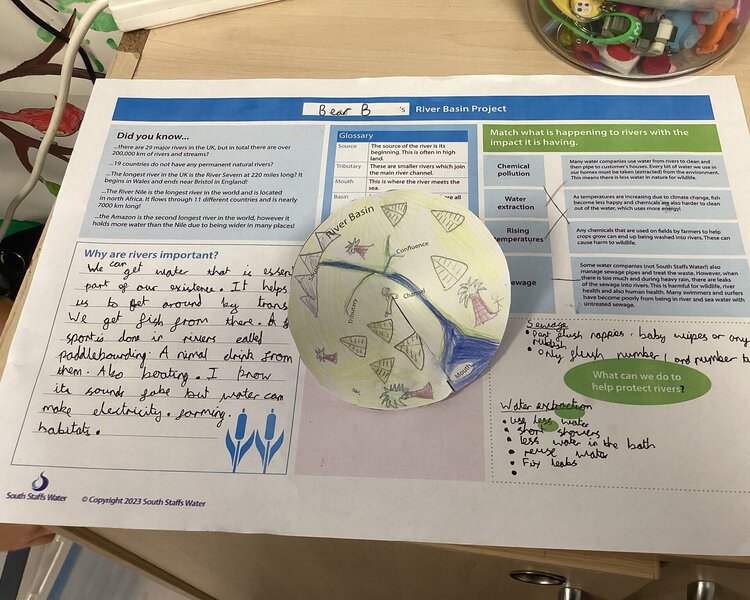 Bear B 's River Basin Project
Did you know...
...there are 29 major rivers in the UK, but in total there are over
200,000 km of rivers and streams?
...19 countries do not have any permanent natural rivers?
...The longest river in the UK is the River Severn at 220 miles long? It
begins in Wales and ends near Bristol in England!
...The River Nile is the longest river in the world and is located
in north Africa. It flows through 11 different countries and is nearly
7000km long!
...the Amazon is the second longest river in the world, however it
holds more water than the Nile due to being wider in many places!
Glossary
Source The source of the river is its
beginning. This is often in high
land.
Tributary These are smaller rivers which join
the main river channel.
Mouth This is where the river meets the
sea.
Basin
Match what is happening to rivers with the
impact it is having.
Chemical
pollution
Water
extraction
Rising
temperatures
ewage
Many water companies use water from rivers to clean and
then pipe to customer's houses. Every bit of water we use in
our homes must be taken (extracted) from the environment.
This means there is less water in nature for wildlife.
As temperatures are increasing due to climate change, fish
become less happy and chemicals are also harder to clean
out of the water, which uses more energy!
Any chemicals that are used on fields by farmers to help
crops grow can end up being washed into rivers. These can
cause harm to wildlife.
Some water companies (not South Staffs Water!) also
manage sewage pipes and treat the waste. However, when
there is too much and during heavy rain, there are leaks
of the sewage into rivers. This is harmful for wildlife, river
health and also human health. Many swimmers and surfers
have become poorly from being in river and sea water with
untreated sewage.
Why are rivers important?
We can get water that is essen
part of our existence. It helps
us to get around by trans
We get fish from there. A
sport is done in rivers called
paddleboarding. Animal drink from
them. Also boating. I know
its sounds fake but water can
make electricity. farming.
habitats.
River Basin
Confluence
Tributary
Chan
Mouth
Sewage
• Dont flush nappies. baby wipes or any
rubbish
• only flush number 1 and number
What can we do to
help protect rivers?
Water extraction
• use less water
• short showers
• less water in the bath
• reuse water
• Fix leaks
•
South Staffs Water
© Copyright 2023 South Staffs Water